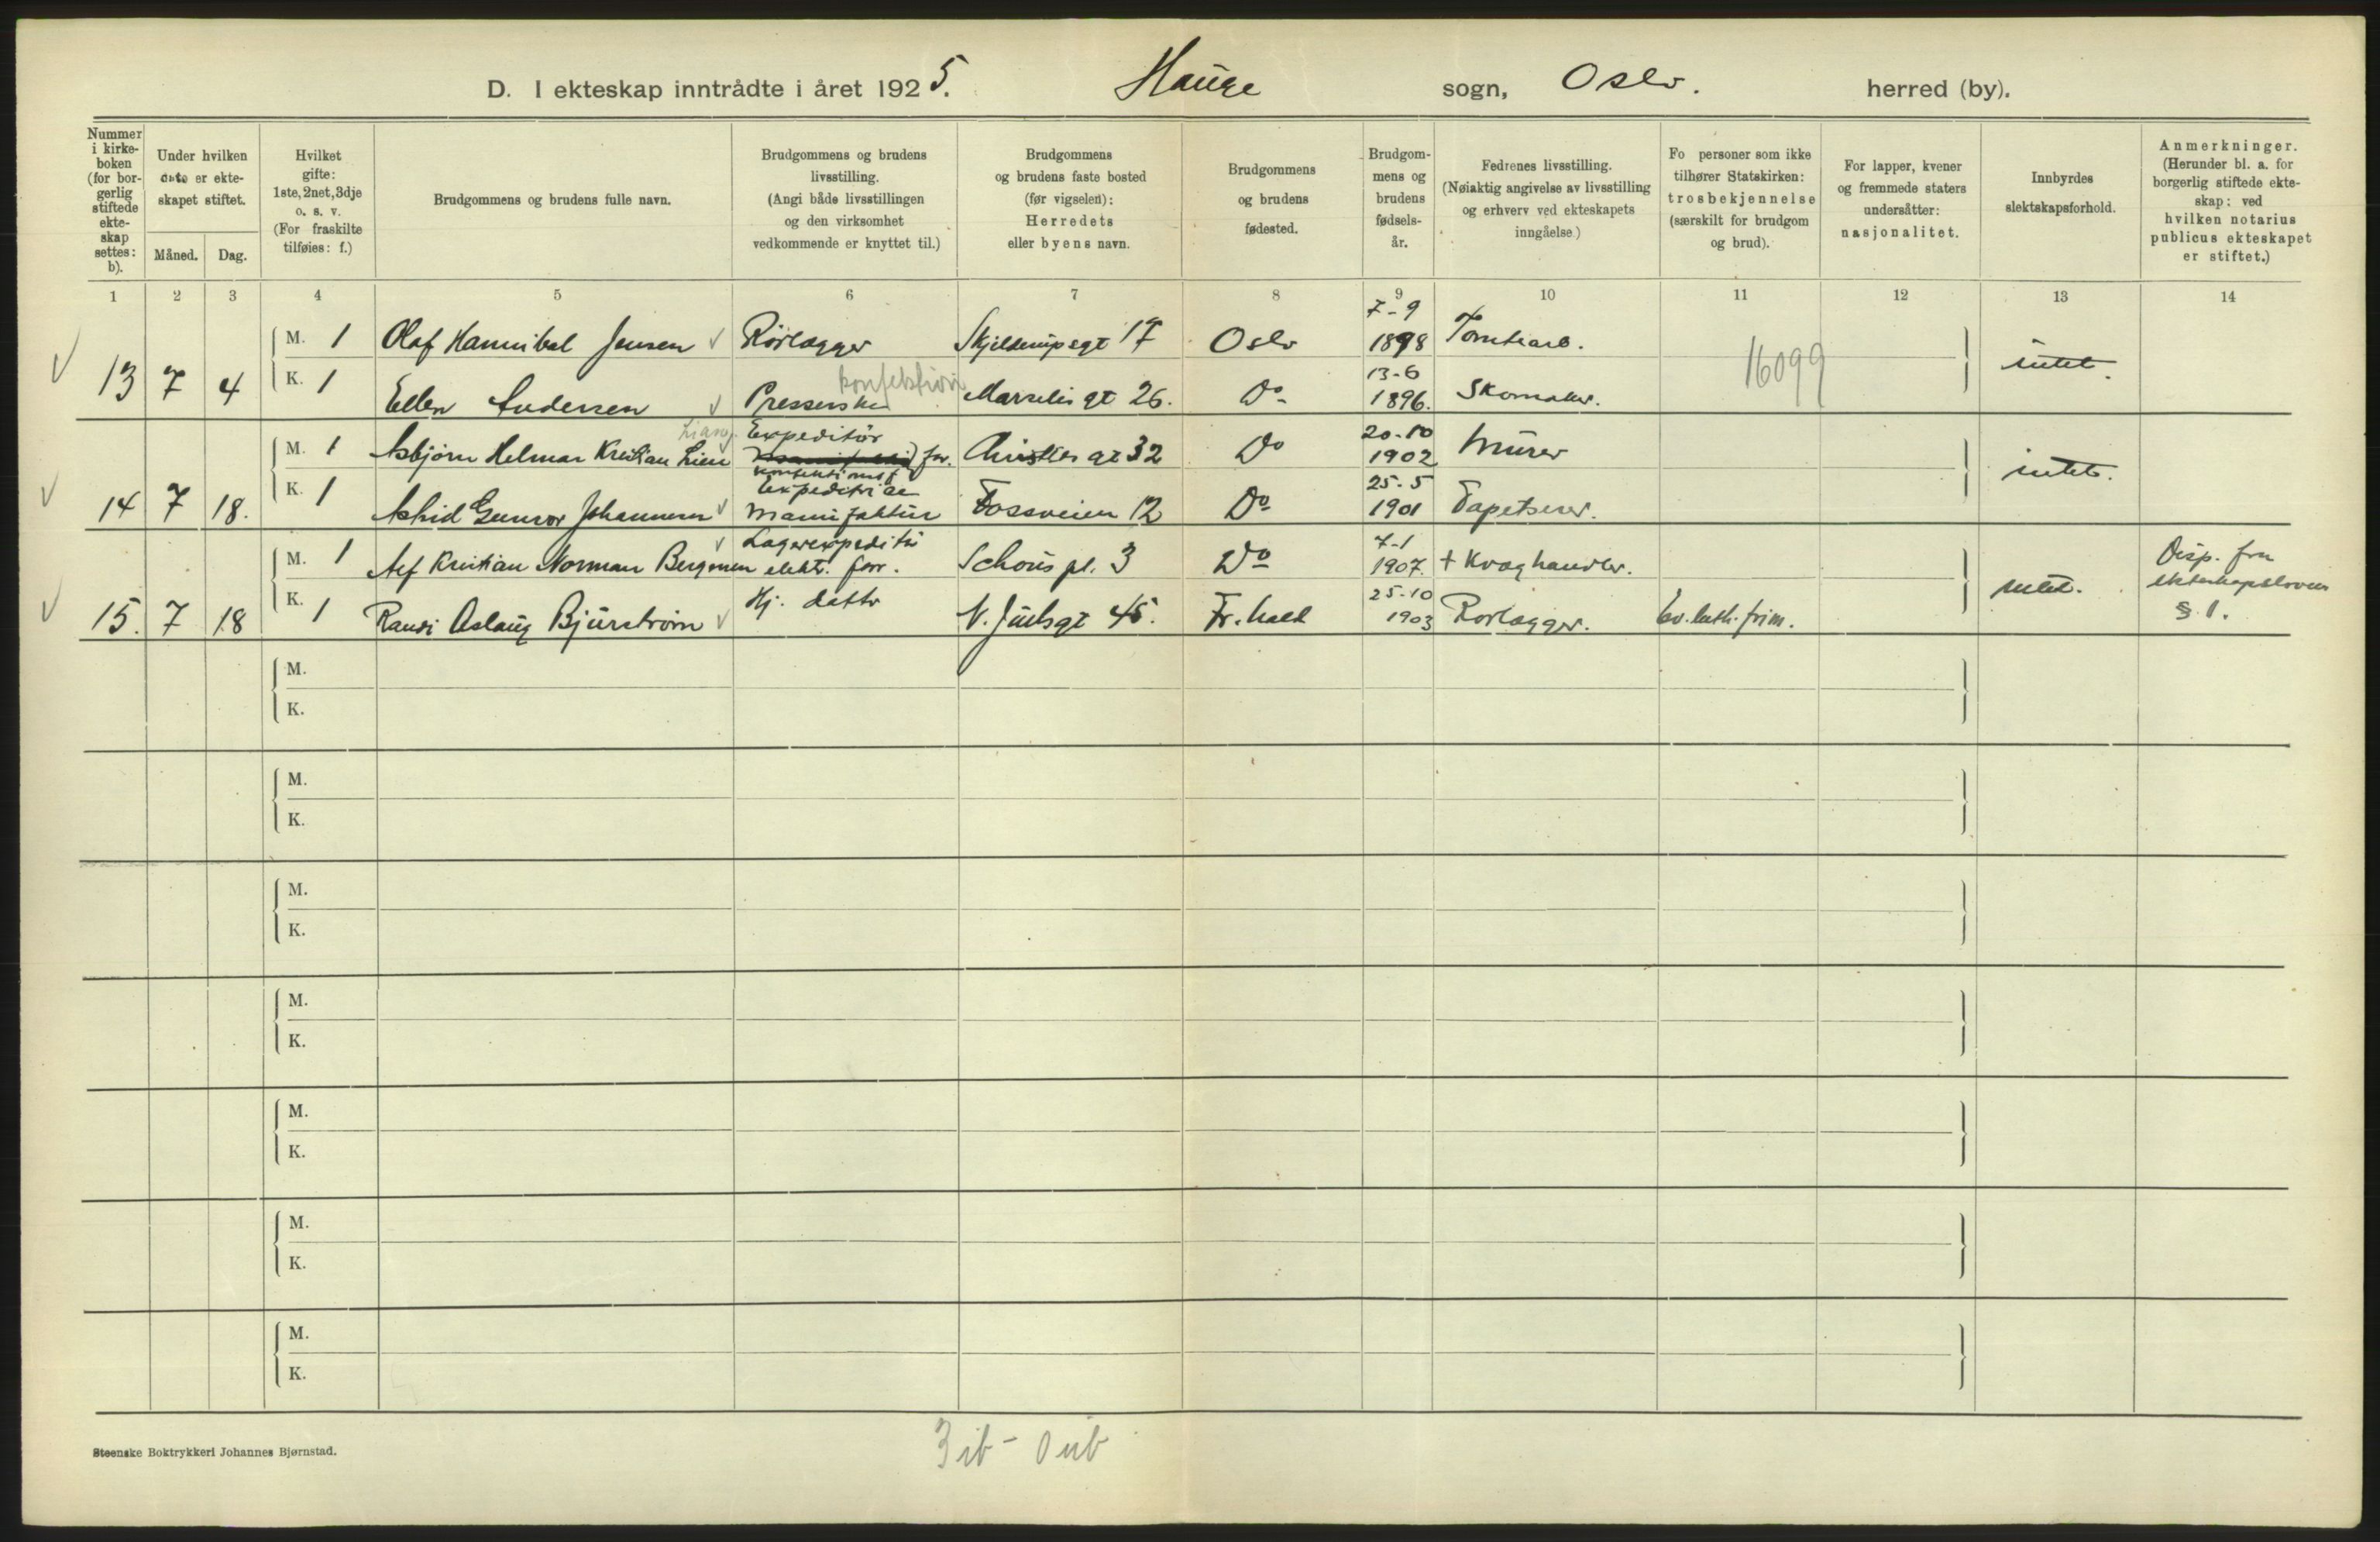 D. I ekteskap inntrådte i året 1925. Hauge sogn, Oslo. herred (by).
Nummer i kirke-boken (for bor-gerlig stiftede ekte-skap settes: b).
Under hvilken dato er ekte-skapet stiftet.
Måned. Dag.
Hvilket gifte: 1ste, 2net, 3dje o. s. v. (For fraskilte tilføies: f.)
Brudgommens og brudens fulle navn.
Brudgommens og brudens livsstilling. (Angi både livsstillingen og den virksomhet vedkommende er knyttet til.)
Brudgommens og brudens faste bosted (før vigselen): Herredets eller byens navn.
Brudgommens og brudens fødested.
Brudgom-mens og brudens fødsels-år.
Fedrenes livsstilling. (Nøiaktig angivelse av livsstilling og erhverv ved ekteskapets inngåelse)
Fo personer som ikke tilhører Statskirken: trosbekjennelse (særskilt for brudgom og brud).
For lapper, kvener og fremmede staters undersåtter: nasjonalitet.
Innbyrdes slektskapsforhold.
Anmerkninger. (Herunder bl. a. for borgerlig stiftede ekte-skap: ved hvilken notarius publicus ekteskapet er stiftet.)
1 2 3 4 5 6 7 8 9 10 11 12 13 14
M. 1 Olaf Hannibal Jensen Rörlægger Skjelderupsgt 17 Oslo 7-9 1898 Tomtearb. 16099
13 7 4 K. 1 Ellen Andersen Presserske konfektion Marselis gt 26. Do 13-6 1896. Skomaker. intet.
M. 1 Asbjörn Helmar Kristian Lien Expeditör for. Christies gt 32 Do 20-10 1902 Murer
konfektions
14 7 18. K. 1 Astrid Gunvor Johannesen Expeditrice Manufaktur Fossveien 12 Do 25-5 1901 Tapetserer. intet.
M. 1 Alf Kristian Norman Bergersen Lagerexpeditör elektr. forr. Schous pl. 3 Do 7-1 1907. + Kvæghandler. Disp. fra ekteskapsloven § 1.
15. 7 18 K. 1 Randi Aslaug Bjurström Hj. datter N. Juelsgt 45. Fr.hald 25-10 1903 Rörlægger. Ev. luth. frim. intet.
M.
K.
M.
K.
M.
K.
M.
K.
M.
K.
M.
K.
M.
K.
3 ib - 0 ub
Steenske Boktrykkeri Johannes Bjørnstad.